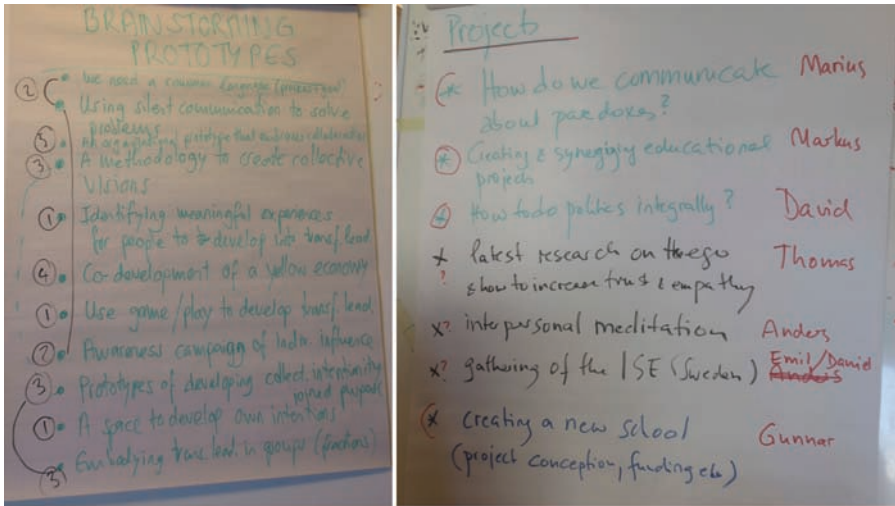 BRAINSTORMING
PROTOTYPES
② • We need a common language
• Using silent communication to solve
problems
⑤ • An organisational prototype that embraces collaboration
③ • A methodology to create collective
visions
① • Identifying meaningful experiences
for people to develop into transf. lead.
④ • Co-development of a yellow economy
① • Use game/play to develop transf. lead.
② • Awareness campaign of indiv. influence
③ • Prototypes of developing collect. intentionality
joined purpose
① • A space to develop own intentions
③ • Embodying trans. lead. in groups (fractions)
Projects
* How do we communicate Marius
about paradoxes?
* Creating & synergizing educational Markus
projects
* How to do politics integrally? David
x latest research on the ego Thomas
? & how to increase trust & empathy
x? interpersonal meditation Anders
x? gathering of the ISE (Sweden) Emil/David
Anders
* creating a new school Gunnar
(project conception, funding etc.)